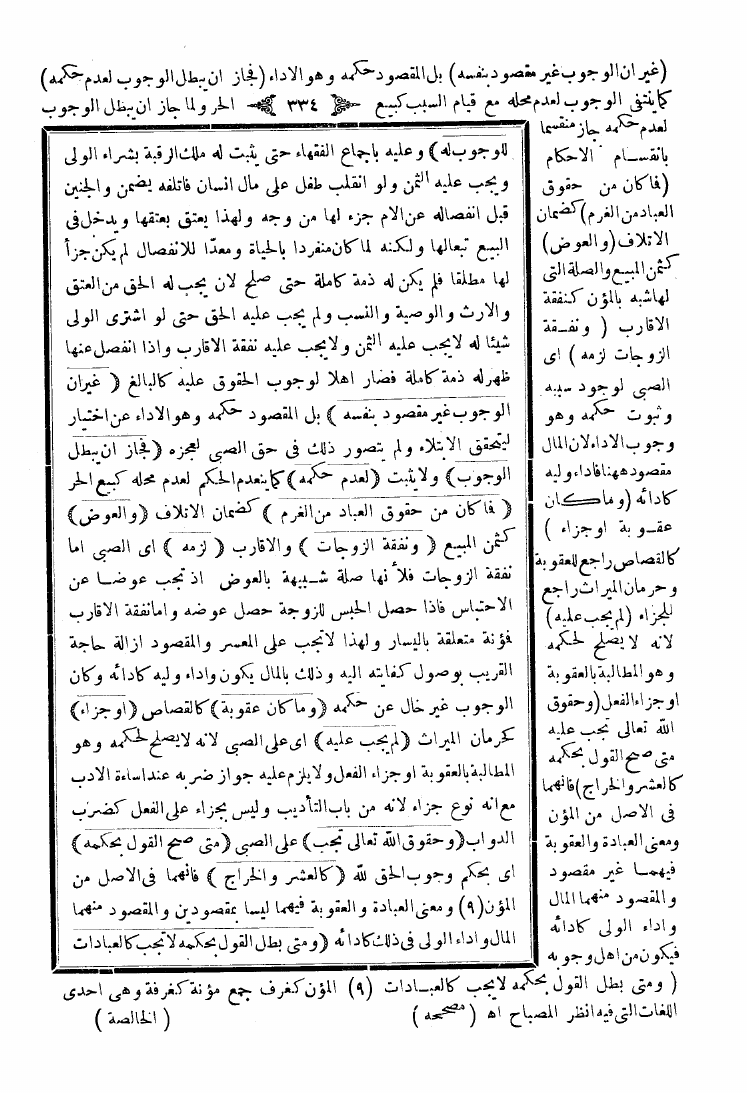 (غير ان الوجوب غير مقصود بنفسه) بل المقصود حكمه وهو الاداء (فجاز ان يبطل الوجوب لعدم حكمه)
كما ينتفى الوجوب لعدم محله مع قيام السبب كبيع ٣٣٤ الحر ولما جاز ان يبطل الوجوب
لعدم حكمه جاز منقسما
بانقسام الاحكام
(فما كان من حقوق
العباد من الغرم) كضمان
الاتلاف (والعوض)
كثمن المبيع والصلة التى
لها شبه بالمؤن كنفقة
الاقارب (ونفقة
الزوجات لزمه) اى
الصبى لوجود سببه
وثبوت حكمه وهو
وجوب الاداء لان المال
مقصود ههنا فاداء وليه
كادائه (وما كان
عقوبة او جزاء)
كالقصاص راجع للعقوبة
وحرمان الميراث راجع
للجزاء (لم يجب عليه)
لانه لا يصلح لحكمه
وهو المطالبة بالعقوبة
او جزاء الفعل (وحقوق
الله تعالى تجب عليه
متى صح القول بحكمه
كالعشر والخراج) فانهما
فى الاصل من المؤن
ومعنى العبادة والعقوبة
فيهما غير مقصود
والمقصود منهما المال
واداء الولى كادائه
فيكون من اهل وجوبه
للوجوب له) وعليه باجماع الفقهاء حتى يثبت له ملك الرقبة بشراء الولى
ويجب عليه الثمن ولو انقلب طفل على مال انسان فاتلفه يضمن والجنين
قبل انفصاله عن الام جزء لها من وجه ولهذا يعتق بعتقها ويدخل فى
البيع تبعا لها ولكنه لما كان منفردا بالحياة ومعدّا للانفصال لم يكن جزأ
لها مطلقا فلم يكن له ذمة كاملة حتى صلح لان يجب له الحق من العتق
والارث والوصية والنسب ولم يجب عليه الحق حتى لو اشترى الولى
شيئا له لا يجب عليه الثمن ولا يجب عليه نفقة الاقارب واذا انفصل عنها
ظهر له ذمة كاملة فصار اهلا لوجوب الحقوق عليه كالبالغ (غير ان
الوجوب غير مقصود بنفسه) بل المقصود حكمه وهو الاداء عن اختيار
ليتحقق الابتلاء ولم يتصور ذلك فى حق الصبى لعجزه (فجاز ان يبطل
الوجوب) ولا يثبت (لعدم حكمه) كما ينعدم الحكم لعدم محله كبيع الحر
(فما كان من حقوق العباد من الغرم) كضمان الاتلاف (والعوض)
كثمن المبيع (ونفقة الزوجات) والاقارب (لزمه) اى الصبى اما
نفقة الزوجات فلأنها صلة شبيهة بالعوض اذ تجب عوضا عن
الاحتباس فاذا حصل الحبس للزوجة حصل عوضه واما نفقة الاقارب
فمؤنة متعلقة باليسار ولهذا لا تجب على المعسر والمقصود ازالة حاجة
القريب بوصول كفايته اليه وذلك بالمال يكون واداء وليه كادائه وكان
الوجوب غير خال عن حكمه (وما كان عقوبة) كالقصاص (او جزاء)
كحرمان الميراث (لم يجب عليه) اى على الصبى لانه لا يصلح لحكمه وهو
المطالبة بالعقوبة او جزاء الفعل ولا يلزم عليه جواز ضربه عند اساءة الادب
مع انه نوع جزاء لانه من باب التأديب وليس بجزاء على الفعل كضرب
الدواب (وحقوق الله تعالى تجب) على الصبى (متى صح القول بحكمه)
اى بحكم وجوب الحق لله (كالعشر والخراج) فانهما فى الاصل من
المؤن (٩) ومعنى العبادة والعقوبة فيهما ليسا بمقصودين والمقصود منهما
المال واداء الولى فى ذلك كادائه (ومتى بطل القول بحكمه لا تجب كالعبادات
(ومتى بطل القول بحكمه لا يجب كالعبادات (٩) المؤن كغرف جمع مؤنة كغرفة وهى احدى
اللغات التى فيه انظر المصباح اه (مصححه) (الخالصة)